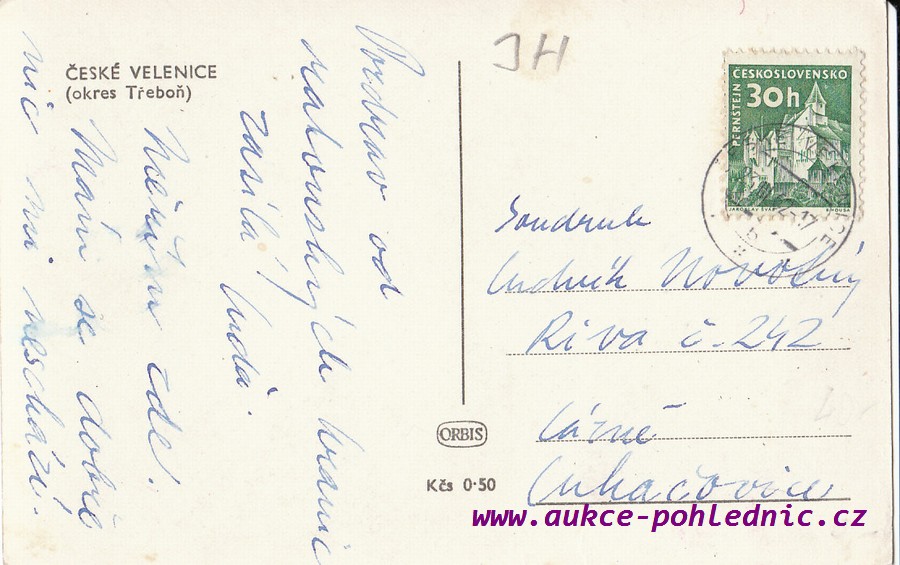 ČESKÉ VELENICE
(okres Třeboň)
Pozdrav od
rakouských hranic
zasílá Luda.
Neřum zde!
Mám se dobře
nic mi neschází.
JH
ČESKOSLOVENSKO
30h
PERNŠTEJN
JAROSLAV ŠVÁB
Soudruh
Ludvík Novotný
Riva č. 242
Lázně
Luhačovice
ORBIS
Kčs 0·50
www.aukce-pohlednic.cz